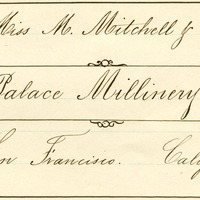 Miss M. Mitchell &
Palace Millinery
San Francisco. Cal